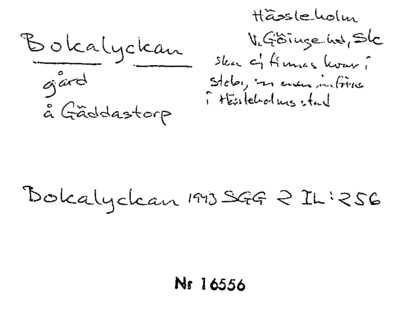 Bokalyckan
gård
å Gäddastorp
Hässleholm
V. Göinge hd, Sk
skall ej finnas kvar i
i Hässleholms stad
Bokalyckan 1943 SGG 2 IL:256
Nr 16556